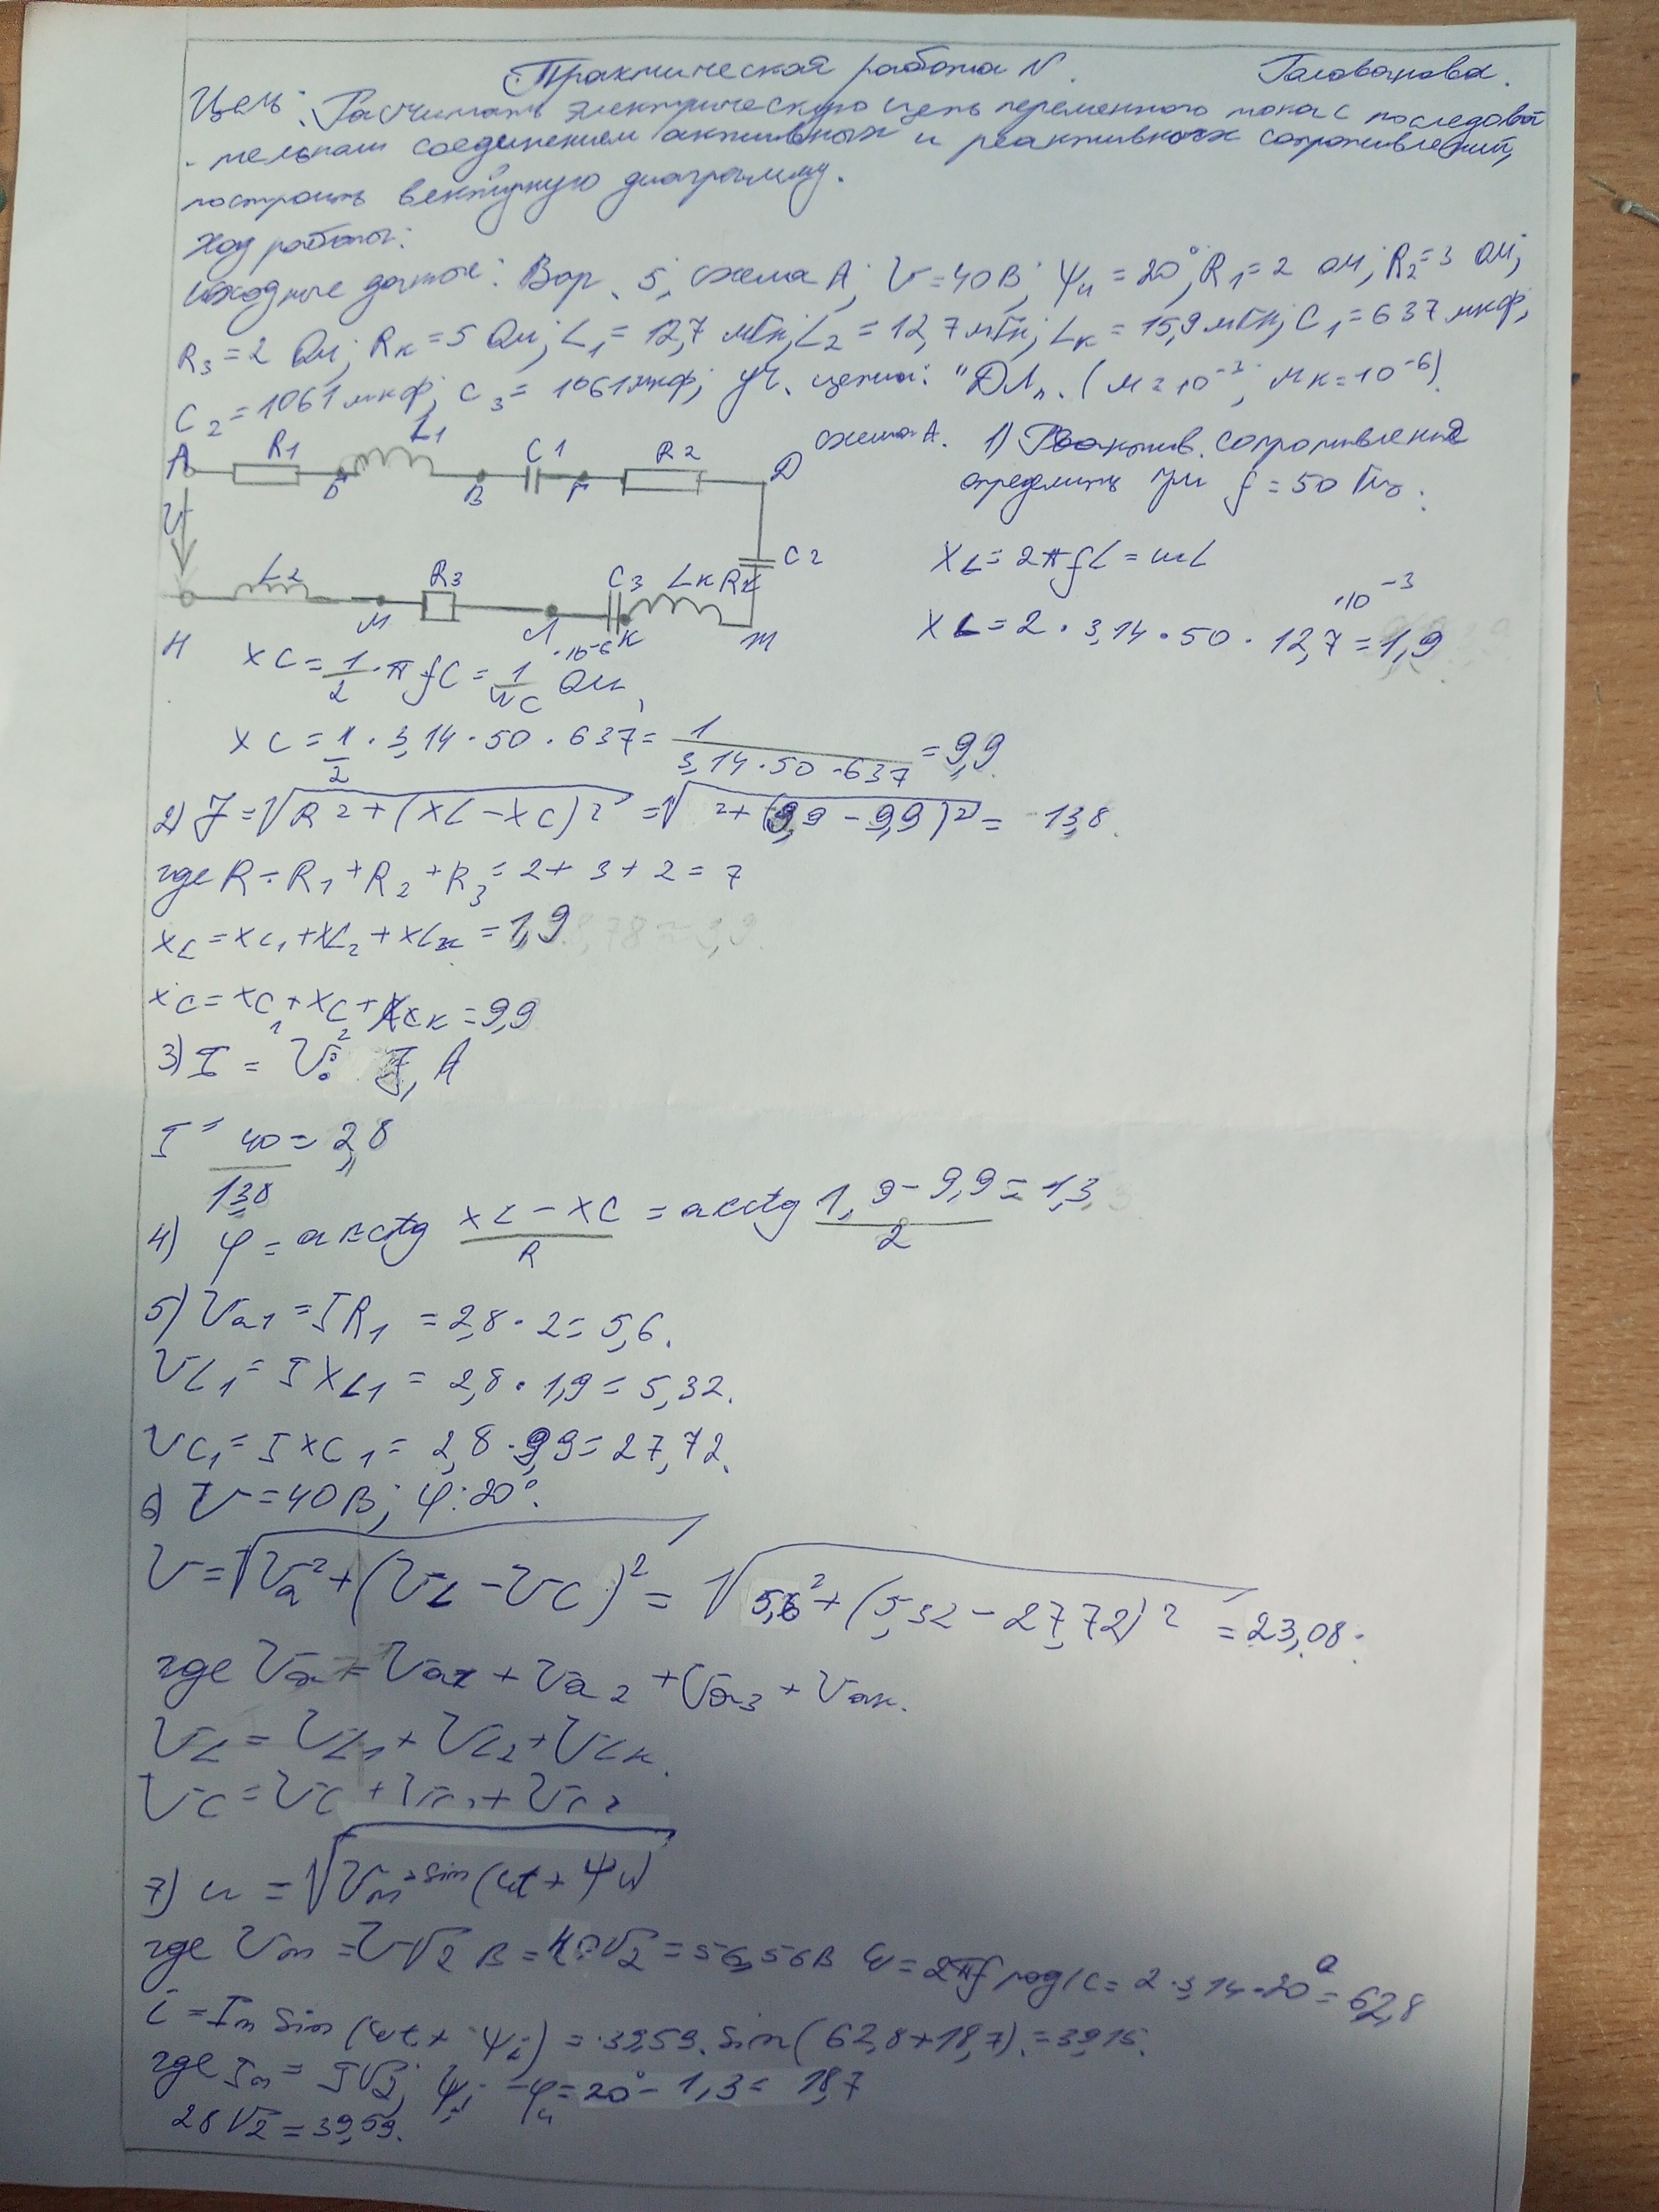 Практическая работа N. Голованова.
Цель: Расчитать электрическую цепь переменного тока с последова
- тельным соединением активных и реактивных сопротивлений,
построить векторную диаграмму.
Ход работы:
Исходные данные: Вар. 5, схема А; U=40В; ψu = 20° R1=2 Ом; R2=3 Ом;
R3=2 Ом; Rк=5 Ом; L1=12,7 мГн; L2=12,7 мГн; Lк=15,9 мГн; C1=637 мкф;
C2=1061 мкф; C3=1061 мкф; уч. цепи: "ДЛ". (м=10-3; мк=10-6)
A R1 Б L1 В C1 Г R2 Д
схема А. 1) Реактив. сопротивление
определить при f=50 Гц.
U C2
L2 R3 C3 Lк Rк
Н М Л К m
XL=2πfL=wL
XL=2·3,14·50·12,7·10-3=1,9
XC=1/2·πfC=1/wC·10-6 Ом,
XC=1/2·3,14·50·637=1/3,14·50·637=9,9
2) Z=√R2+(XL-XC)2=√2+(9,9-9,9)2= 13,8.
где R=R1+R2+R3=2+3+2=7
XL=XL1+XL2+XLк=1,9
XC=XC1+XC2+XCк=9,9
3) I=U: Z, A
I=40/13,8=2,8
4) φ=arctg XL-XC/R=arctg 1,9-9,9/2=1,3
5) Ua1=IR1=2,8·2=5,6.
UL1=IXL1=2,8·1,9=5,32.
UC1=IXC1=2,8·9,9=27,72.
6) U=40В; φ:20°.
U=√Ua2+(UL-UC)2=√5,62+(5,32-27,72)2=23,08.
где Ua=Ua1+Ua2+Ua3+Uaк.
UL=UL1+UL2+ULк.
UC=UC+UC2+UC3
7) u=√Um2sin(wt+ψu)
где Um=U√2 В=40√2=56,56В w=2πf рад/с=2·3,14·20=62,8
i=Im sin(wt+ψi)=39,59.sin(62,8+18,7).=3915.
где Im=I√2; ψi -φ=20°-1,3= 18,7
28√2=39,59.